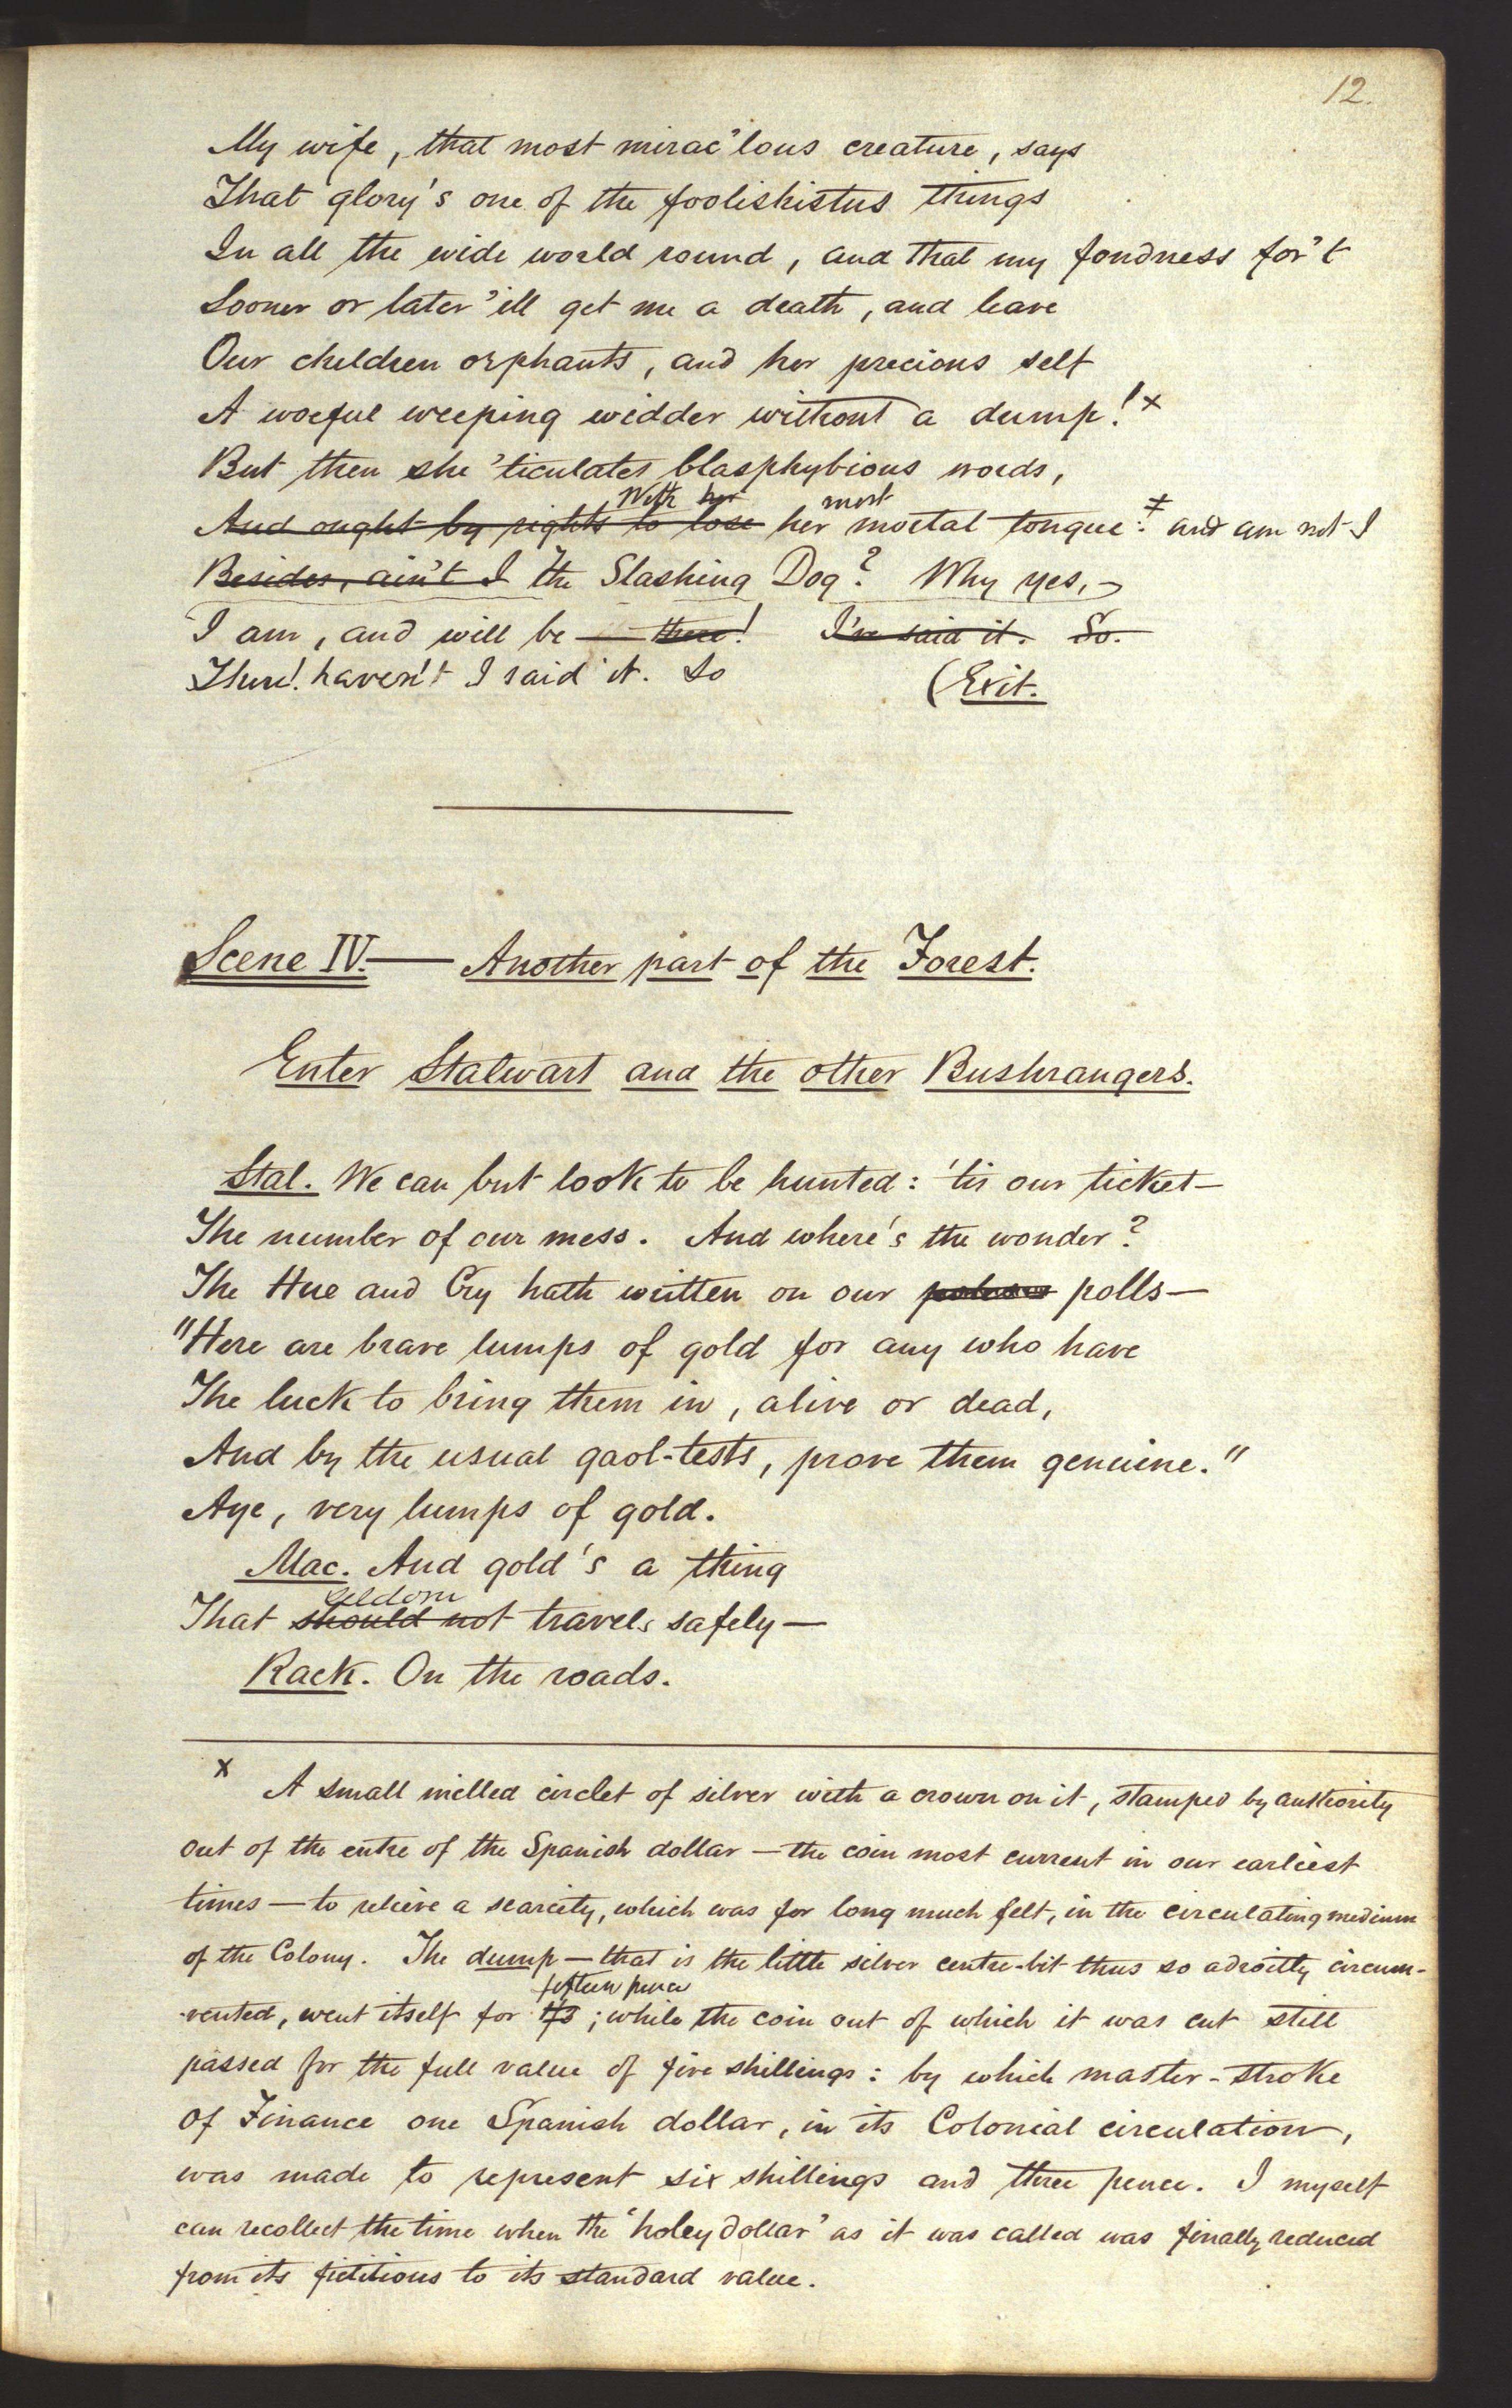 12.
My wife, that most mirac'lous creature, says
That glory's one of the foolishistus things
In all the wide world round, and that my fondness for't
Sooner or later 'ill get me a death, and leave
Our children orphants, and her precious self
A woeful weeping widder without a dump! x
But then she 'ticulates blasphybious words,
With her most
And ought by rights to lose her mortal tongue. ‡ and am not I
Besides, ain't I the Slashing Dog? Why yes,
I am, and will be — there! I've said it. So.
There! haven't I said it. So
(Exit.
Scene IV. — Another part of the Forest.
Enter Stalwart and the other Bushrangers.
Stal. We can but look to be hunted: 'tis our ticket —
The number of our mess. And where's the wonder?
The Hue and Cry hath written on our polls —
"Here are brave lumps of gold for any who have
The luck to bring them in, alive or dead,
And by the usual gaol-tests, prove them genuine."
Aye, very lumps of gold.
Mac. And gold's a thing
seldom
That should not travels safely —
Rack. On the roads.
x A small milled circlet of silver with a crown on it, stamped by authority
out of the entre of the Spanish dollar — the coin most current in our earliest
times — to relieve a scarcity, which was for long much felt, in the circulating medium
of the Colony. The dump — that is the little silver centre-bit thus so adroitly circum-
fifteen pence
-vented, went itself for ; while the coin out of which it was cut still
passed for the full value of five shillings: by which master-stroke
of Finance one Spanish dollar, in its Colonial circulation,
was made to represent six shillings and three pence. I myself
can recollect the time when the 'holey dollar' as it was called was finally reduced
from its fictitious to its standard value.